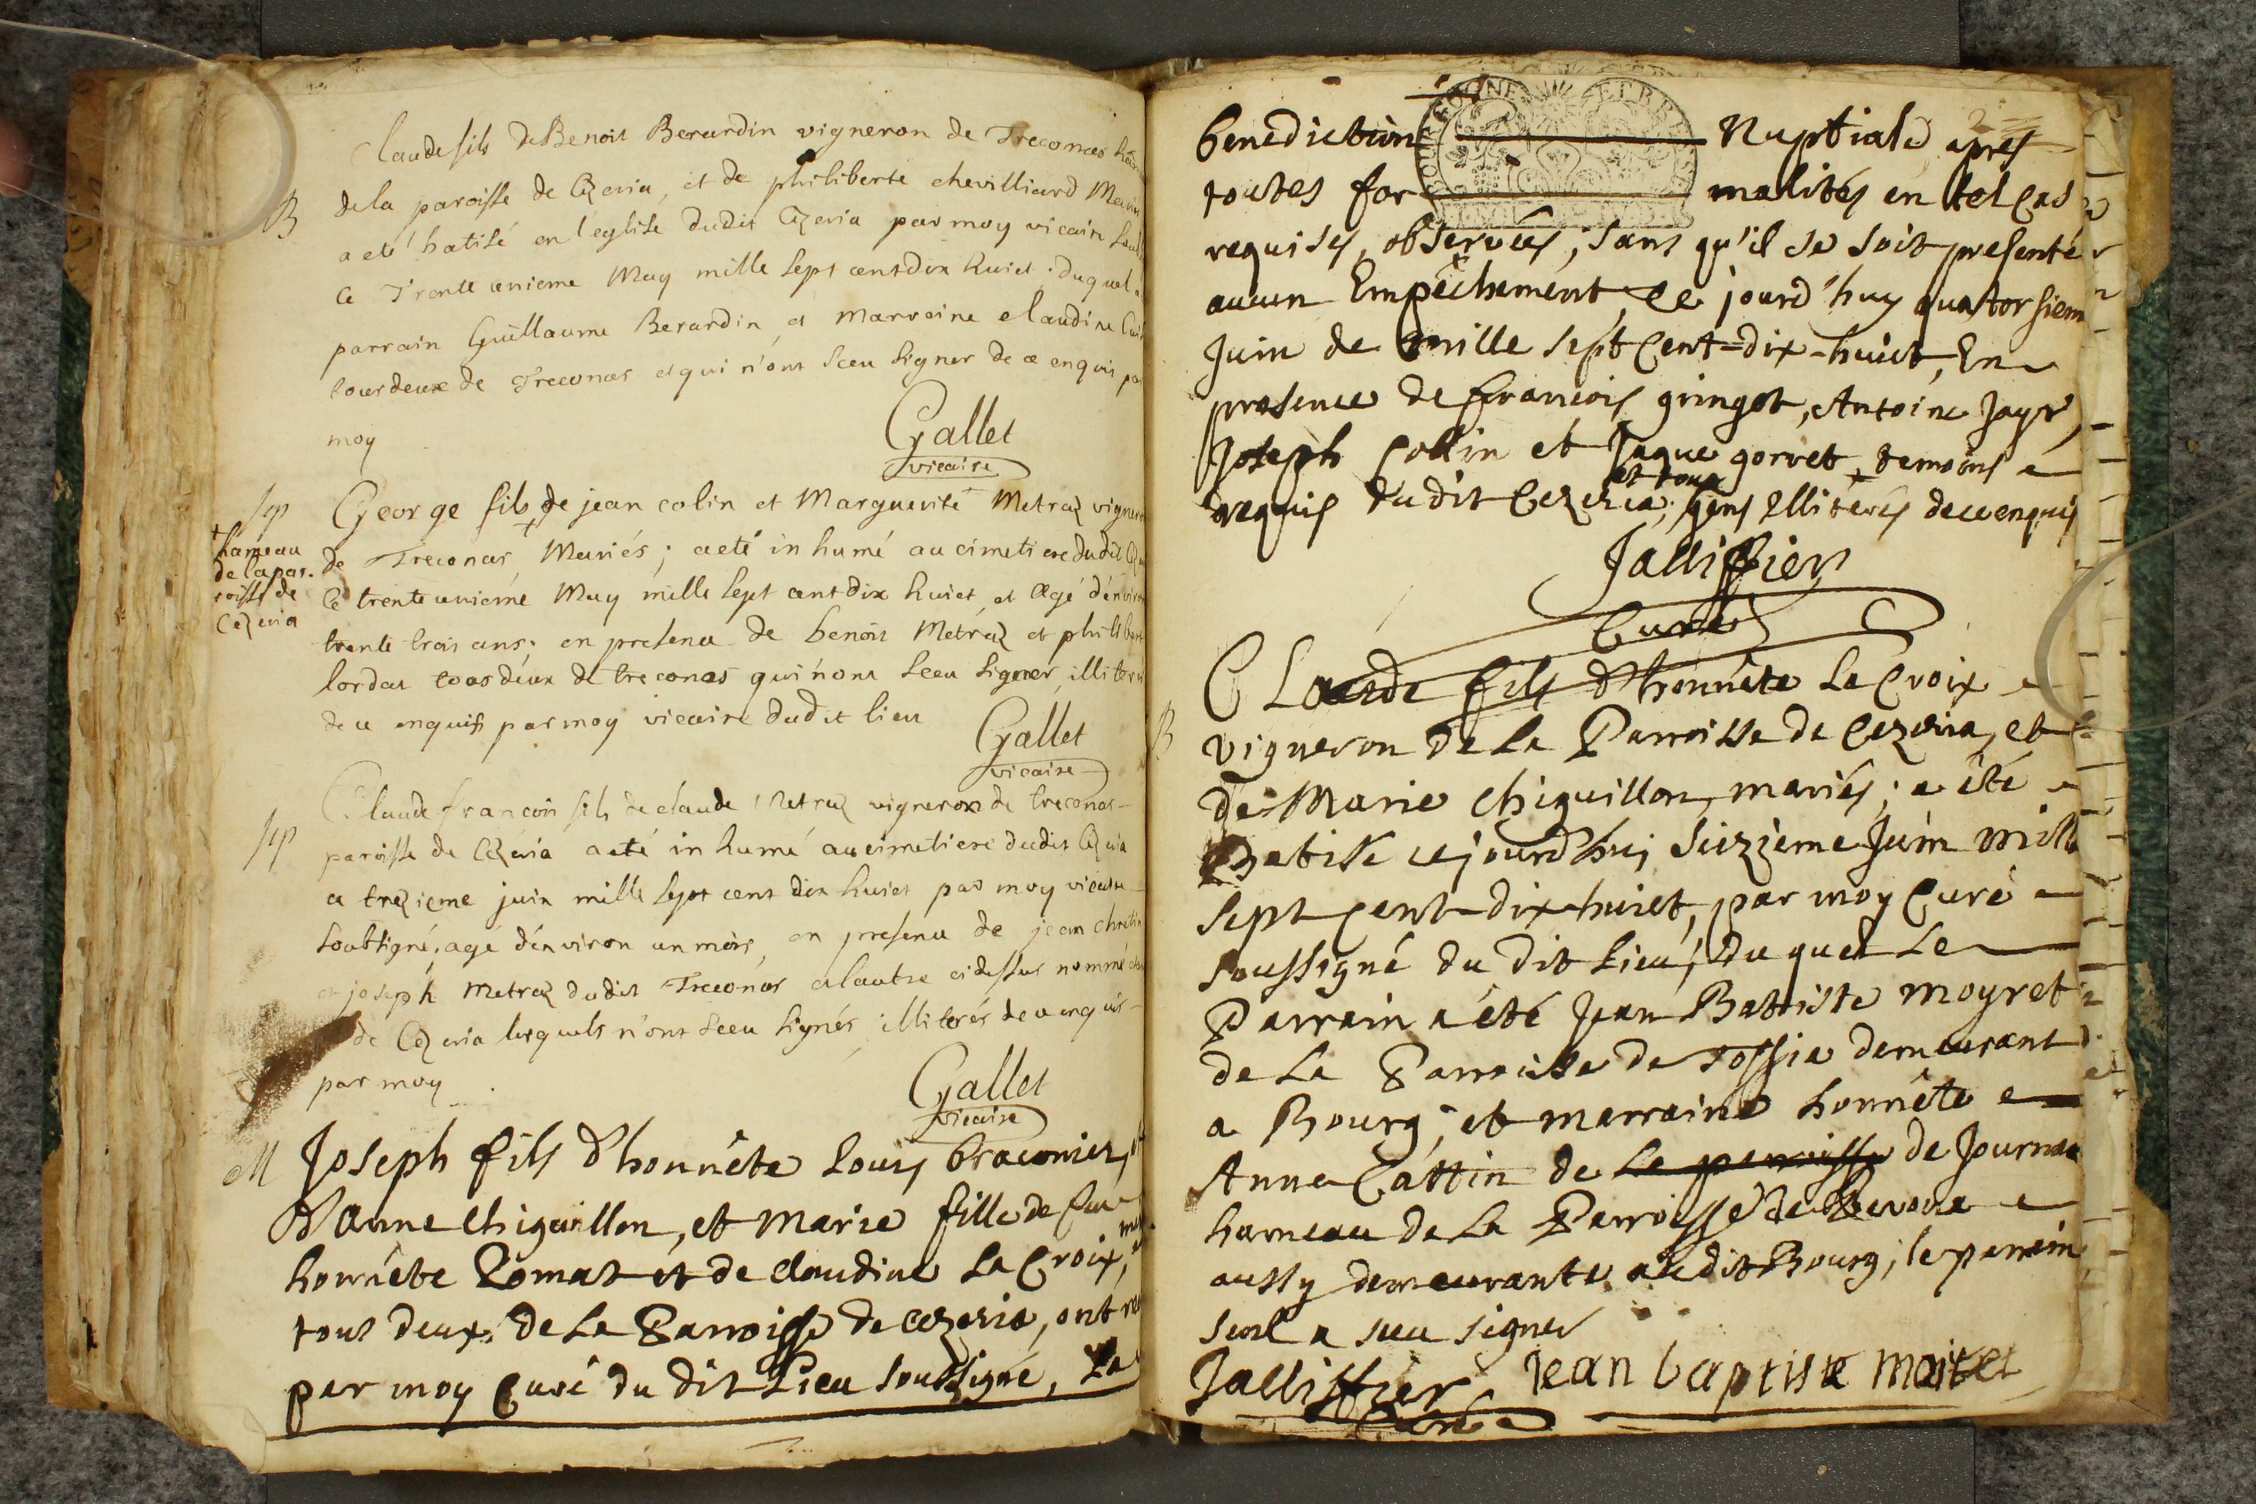 B
Claude fils de Benoit Berardin vigneron de Treconas
de la paroisse de Cezeria, et de philiberte chevilliard
a eté batisé en l'eglise dudit Cezeria par moy vicaire
ce Trente unieme May mille sept cent dix huict. duquel
parrain Guillaume Berardin, et marraine claudine
tous deux de Treconas et qui n'ont sceu signer de ce enquis
moy
Gallet
vicaire
Sep
+ hameau
de la par-
roisse de
Cezeria
George fils de jean colin et Marguerite Metraz
de Treconas Mariés; a eté inhumé au cimetiere dudit
ce trente unieme May mille sept cent dix huict, et agé d'environ
trente trois ans; en presence de benoit Metraz et
lordat tous deux de treconas qui n'ont sceu signer,
de ce enquis par moy vicaire dudit lieu
Gallet
vicaire
Sep
Claude françois fils de claude Metraz vigneron de treconas
paroisse de Cezeria a eté inhumé au cimetiere dudit Cezeria
ce trezieme juin mille sept cent dix huict par moy vicaire
soubsigné; agé d'environ un mois, en presence de jean
et joseph Metraz dudit Treconas et lautre cidessus nommé
de Cezeria lesquels n'ont sceu signés, illiterés de ce enquis
par moy
Gallet
vicaire
M
Joseph fils d'honnête Louis braconier,
d'anne Chiquillon, et Marie fille de
honnête Romas et de claudine La Croix,
tous deux de La Parroisse de cezeria, ont
par moy Curé du dit Lieu soussigné, La
benediction Nuptiale après
toutes formalités en tel cas
requises, observées, sans qu'il se soit presenté
aucun Empêchement, ce jourd'huy quatorsiem
Juin de mille sept cent-dix-huict, En
presence de françois gringot, Antoine Jayr,
Joseph Collin et Jaque gorret temoins
et tous
requis du dit Cezeria, gens illiterés de ce enquis
Jalliffier
Curé
B
CLaude fils d'honnête La Croix
vigneron de La Parroisse de Cezeria, et
de Marie Chiquillon, mariés; a été
Batisé ce jourd'huj seizième Juin mille
sept cent-dix-huict, par moy Curé
soussigné du dit lieu; du quel Le
Parrain a été Jean Battiste moyret
de La Parroisse de Tossia demeurant
a Bourg; et marraine honnête
Anne Cattin de la paroisse de Journan
hameau de La Parroisse de Revona
aussy demeurante au dit Bourg; le parrain
seul a sceu signer
Jalliffier Jean baptiste moiret
Curé